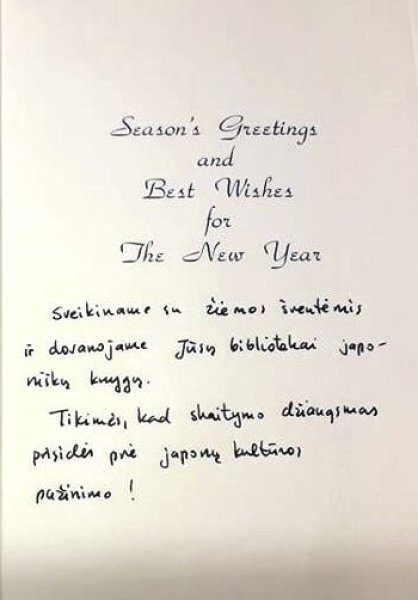 Season's Greetings
and
Best Wishes
for
The New Year
Sveikiname su žiemos šventėmis
ir dovanojame Jūsų bibliotekai japo-
niškų knygų.
Tikimės, kad skaitymo džiaugsmas
prisidės prie japonų kultūros
pažinimo!